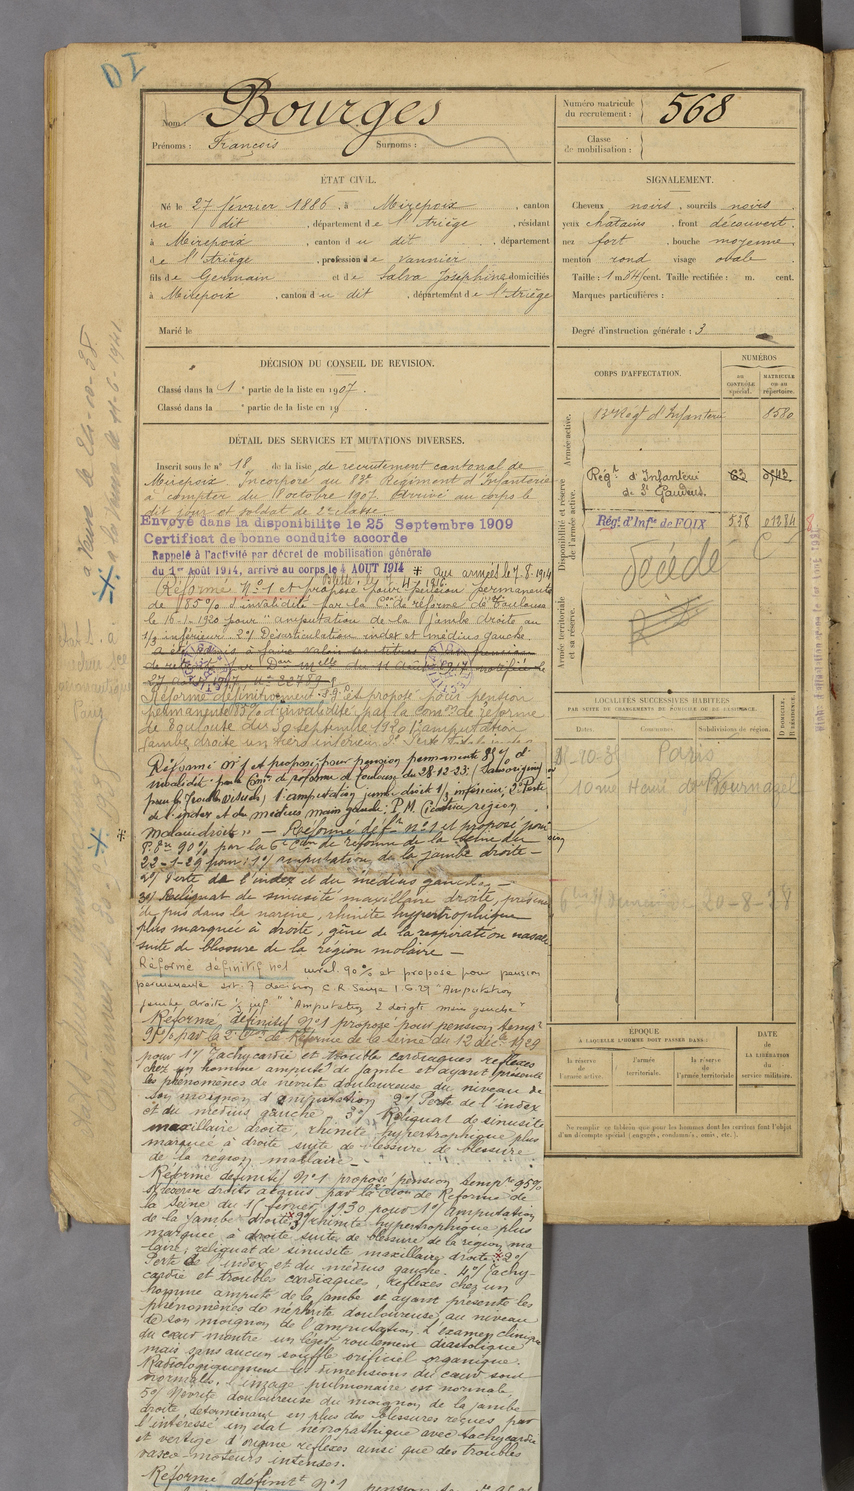 DI
Nom : Bourges
Prénoms : François Surnoms :
Numéro matricule du recrutement : 568
Classe de mobilisation :
ÉTAT CIVIL.
Né le 27 février 1886, à Mirepoix, canton
du dit, département de l'Ariège, résidant
à Mirepoix, canton du dit, département
de l'Ariège, profession de vannier
fils de Germain et de Salva Joséphine domiciliés
à Mirepoix, canton du dit, département de l'Ariège
Marié le
SIGNALEMENT.
Cheveux noirs, sourcils noirs
yeux chatains, front découvert
nez fort, bouche moyenne
menton rond visage ovale
Taille : 1 m. 64 cent. Taille rectifiée : m. cent.
Marques particulières :
Degré d'instruction générale : 3
DÉCISION DU CONSEIL DE REVISION.
Classé dans la 1e partie de la liste en 1907.
Classé dans la e partie de la liste en 19
DÉTAIL DES SERVICES ET MUTATIONS DIVERSES.
Inscrit sous le n° 18 de la liste de recrutement cantonal de
Mirepoix. Incorporé au 83e Régiment d'Infanterie
à compter du 8 octobre 1907. Arrivé au corps le
dit jour et soldat de 2e classe.
Envoyé dans la disponibilité le 25 Septembre 1909
Certificat de bonne conduite accordé
Rappelé à l'activité par décret de mobilisation générale
du 1er Août 1914, arrivé au corps le 4 AOUT 1914 * aux armées le 7.8.1914
Blessé le 7.4.1916.
Réformé N°1 et proposé pour pension permanente
de 85% d'invalidité par la Con de réforme de Toulouse
le 16-1-1920 pour "amputation de la jambe droite au
1/3 inférieur 2°/ Désarticulation index et médius gauche.
a été admis à faire valoir ses titres à une pension
de retraite par Don Melle du 11 Août 1917 notifiée le
27 Août 1917 N° 22789
Réformé définitivement et proposé pour pension
permanente 85% d'invalidité par la Comon de réforme
de Toulouse du 30 septembre 1920 1° amputation
jambe droite un tiers inférieur 2° Perte
Réformé n°1 et proposé pour pension permanente 85% d'
invalidité par la Comon de réforme de Toulouse du 28-12-23
1° amputation jambe droite 1/3 inférieur; 2° Perte
de l'index et du médius main gauche; P.M. Cicatrice région
malaire droite" — Réformé déft n°1 et proposé pour
P. Pte 90% par la 6e Con de réforme de la Seine du
22-1-29 pour: 1°/ amputation de la jambe droite —
2°/ Perte de l'index et du médius gauche —
3°/ Reliquat de sinusite maxillaire droite, présence
de pus dans la narine, rhinite hypertrophique
plus marquée à droite, gêne de la respiration nasale
suite de blessure de la région molaire —
Réformé définitif n°1 inval. 90% et proposé pour pension
permanente art. 7 décision C.R. Seine 1.6.29 "Amputation
jambe droite 1/3 inf." "Amputation 2 doigts main gauche"
Réformé définitif N°1 proposé pour pension tempre
95% par la 2e Con de Réforme de la Seine du 12 déc. 1929
pour 1°/ Tachycardie et trouble cardiaques réflexes
chez un homme amputé de jambe et ayant présenté
les phénomènes de névrite douloureuse du niveau de
son moignon d'amputation 2°/ Perte de l'index
et du médius gauche 3°/ Reliquat de sinusite
maxillaire droite, rhinite hypertrophique plus
marquée à droite suite de blessure de blessure
de la région mallaire —
Réformé définitif N°1 proposé pension tempre 95%
s/ réserve droits acquis par la Con de Réforme de
la Seine du 15 février 1930 pour 1°/ Amputation
de la jambe droite 3°/ rhinite hypertrophique plus
marquée à droite suite de blessure de la région ma-
laire; reliquat de sinusite maxillaire droite × 2°/
Perte de l'index et du médius gauche. 4°/ Tachy-
cardie et troubles cardiaques, réflexes chez un
homme amputé de la jambe et ayant présenté les
phénomènes de néphrite douloureuse, au niveau
de son moignon de l'amputation. L'examen clinique
du cœur montre un léger roulement diastolique
mais sans aucun souffle orificiel organique.
Radiologiquement les dimensions du cœur sont
normales, l'image pulmonaire est normale.
5°/ Névrite douloureuse du moignon de la jambe
droite déterminant en plus des blessures reçues par
l'intéressé un état névropathique avec tachycardie
et vertige d'origine réflexes ainsi que des troubles
vaso-moteurs intenses.
Réformé définit N°1
CORPS D'AFFECTATION.
NUMÉROS
AU CONTRÔLE spécial.
MATRICULE OU AU répertoire.
Armée active.
83e Régt d'Infanterie 8580
Disponibilité et réserve de l'armée active.
Régt d'Infanterie de St Gaudens. 63
Rég. d'Infie de FOIX 538 01284
Décédé
Armée territoriale et sa réserve.
LOCALITÉS SUCCESSIVES HABITÉES
PAR SUITE DE CHANGEMENTS DE DOMICILE OU DE RÉSIDENCE.
Dates. Communes. Subdivisions de région. D. DOMICILE. R. RÉSIDENCE.
Paris
10 rue Henri de Bournazel
20-8-28
ÉPOQUE
À LAQUELLE L'HOMME DOIT PASSER DANS :
la réserve de l'armée active.
l'armée territoriale.
la réserve de l'armée territoriale
DATE de LA LIBÉRATION du service militaire.
Ne remplir ce tableau que pour les hommes dont les services font l'objet
d'un décompte spécial (engagés, condamnés, omis, etc.).